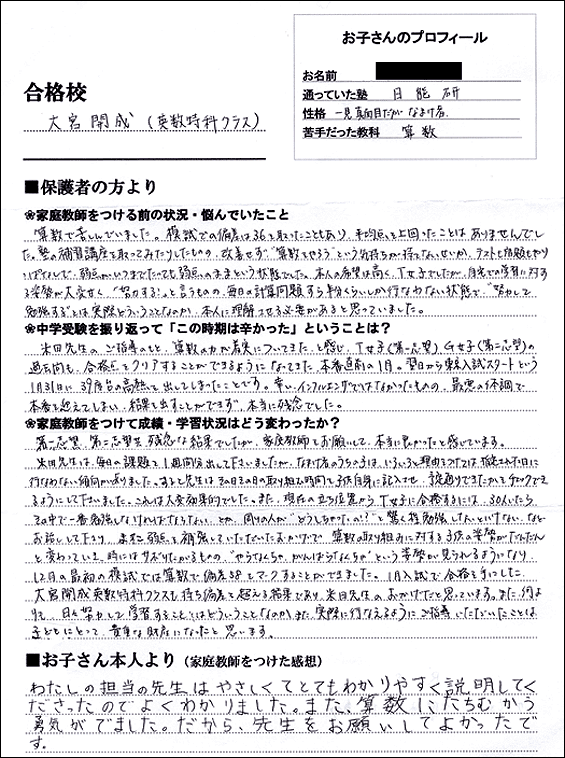 お子さんのプロフィール
お名前
合格校
通っていた塾 日能研
大宮開成(英数特科クラス)
性格 一見真面目だが なまけ者
苦手だった教科 算数
■保護者の方より
❀家庭教師をつける前の状況・悩んでいたこと
算数で苦しんでいました。模試での偏差は36を取ったこともあり、平均点を上回ったことはありませんでし
た。塾の補習講座を取ってみたりしたものの、改善せず"算数をやろう"という気持ちが持てないせいか、テストも宿題もやり
っぱなしで、弱点がいつまでたっても弱点のままという状態でした。本人の希望は高く、T女子でしたが、自宅での学習に対す
る姿勢が大変甘く、"努力する!"と言うものの、毎日の計算問題すら半分くらいしか行なわない状態で、"努力して
勉強する"とは実際どういうことなのか、本人に理解させる必要があると思っていました。
❀中学受験を振り返って「この時期は辛かった」ということは?
米田先生のご指導のもと、算数の力が着実についてきたと感じ、T女子(第一志望)G女子(第二志望)の
過去問も、合格点をクリアすることができるようになってきた本番直前の1月。翌日から東京入試スタートという
1月31日に39度台の高熱を出してしまったことです。幸い、インフルエンザではなかったものの、最悪の体調で
本番を迎えてしまい、結果を出すことができず、本当に残念でした。
❀家庭教師をつけて成績・学習状況はどう変わったか?
第一志望、第二志望は残念な結果でしたが、家庭教師をお願いして、本当に良かったと感じています。
米田先生は、毎日の課題を1週間分出して下さいましたが、なまけ者のうちの子は、いろいろと理由をつけては指定された日に
行なわない傾向がありました。すると先生はその日その日の取り組んだ時間を子供自身に記入させ、誤魔化てきたかもチェックでき
るようにして下さいました。これは大変効果的でした。また、現在の立ち位置からT女子に合格するには、30人いたら
その中で一番勉強しなければならない、とか、周りの人が"どうしちゃったの!?"と驚く程勉強しないといけない、などと
お話して下さり、まさに弱点を補強していただいたおかげで、算数の取り組みに対する子供の姿勢がだんだん
と変わっていき、時にはサボりたがるものの、"やらなくちゃ、がんばらなくちゃ"という姿勢が見られるようになり
12月の最初の模試では算数で偏差58をマークすることができました。1月入試で合格を手にした
大宮開成英数特科クラスも持ち偏差を超える結果であり、米田先生のおかげだと思っています。また何よ
りも、日々努力して学習することとはどういうことなのか、また、実際に行なえるようにご指導いただいたことは
子どもにとって、貴重な財産になったと思います。
■お子さん本人より(家庭教師をつけた感想)
わたしの担当の先生はやさしくてとてもわかりやすく説明してく
ださったのでよくわかりました。また、算数にたちむかう
勇気がでました。だから、先生をお願いしてよかったで
す。